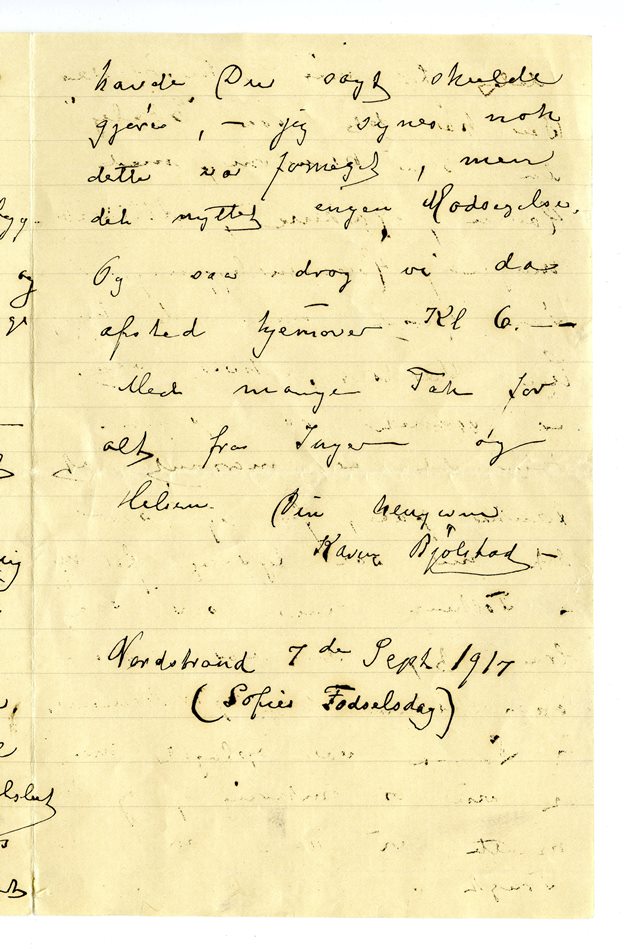 havde Du sagt skulde
gjøres", – jeg synes nok
dette var formeget, men
det nyttet ingen Modsigelse.
Og saa drog vi da
afsted hjemover Kl 6. – –
Med mange Tak for
alt fra Inger og
Hilsen Din hengivne
Karen Bjølstad –
Nordstrand 7de Sept. 1917
(Sofies Fødselsdag)